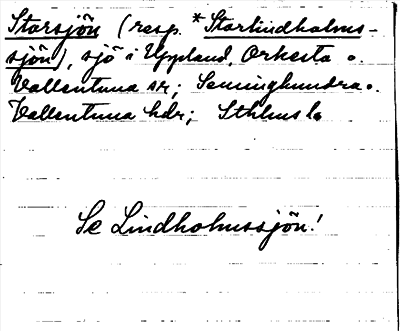 Storsjön (resp. *Storlindholms-
sjön), sjö i Uppland, Orkesta o.
Vallentuna sr; Seminghundra o.
Vallentuna hdr; Sthlms l.
Se Lindholmssjön!